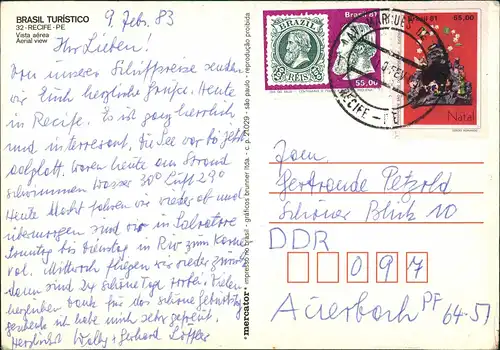 BRASIL TURÍSTICO
32 - RECIFE - PE
Vista aérea
Aerial view
9 Febr. 83
Ihr Lieben!
Von unserer Schiffsreise senden
wir Euch herzliche Grüße. Heute
in Recife. Es ist ganz herrlich
und interessant, die See war bis jetzt
aalglatt. Waren heute am Strand
schwimmen Wasser 30° Luft 29°
Heute Nacht fahren wir wieder ab und
übermorgen sind wir in Salvatore
Sonntag bis Dienstag in Rio zum Karne
val. Mittwoch fliegen wir wieder zurück
dann sind 24 schöne Tage vorbei. Vielen
herzlichen Dank für das schöne Geburtstags
geschenk ich habe mich sehr gefreut.
Herzlichst Wally + Gerhard Löffler
"mercator" impresso no brasil - gráficos brunner ltda - c. p. 21029 - são paulo - reprodução proibida
BRAZIL
REIS
Brasil 81
55,00
Brasil 81
55,00
Natal
RECIFE - PE
Fam.
Gertraude Petzold
Schöner Blick 10
DDR
097
Auerbach PF 64-51